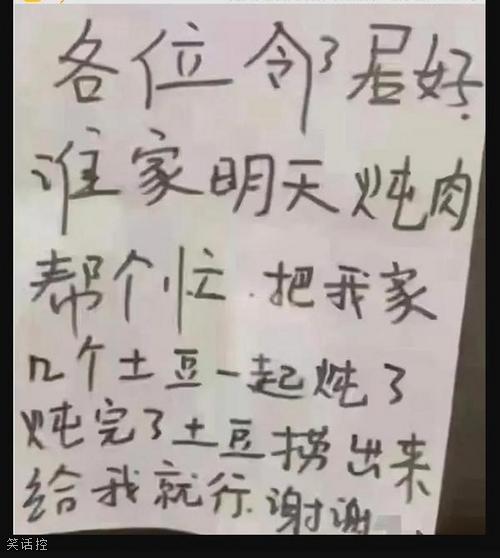 各位邻居好.
谁家明天炖肉
帮个忙.把我家
几个土豆一起炖了
炖完了土豆捞出来
给我就行.谢谢
笑话控